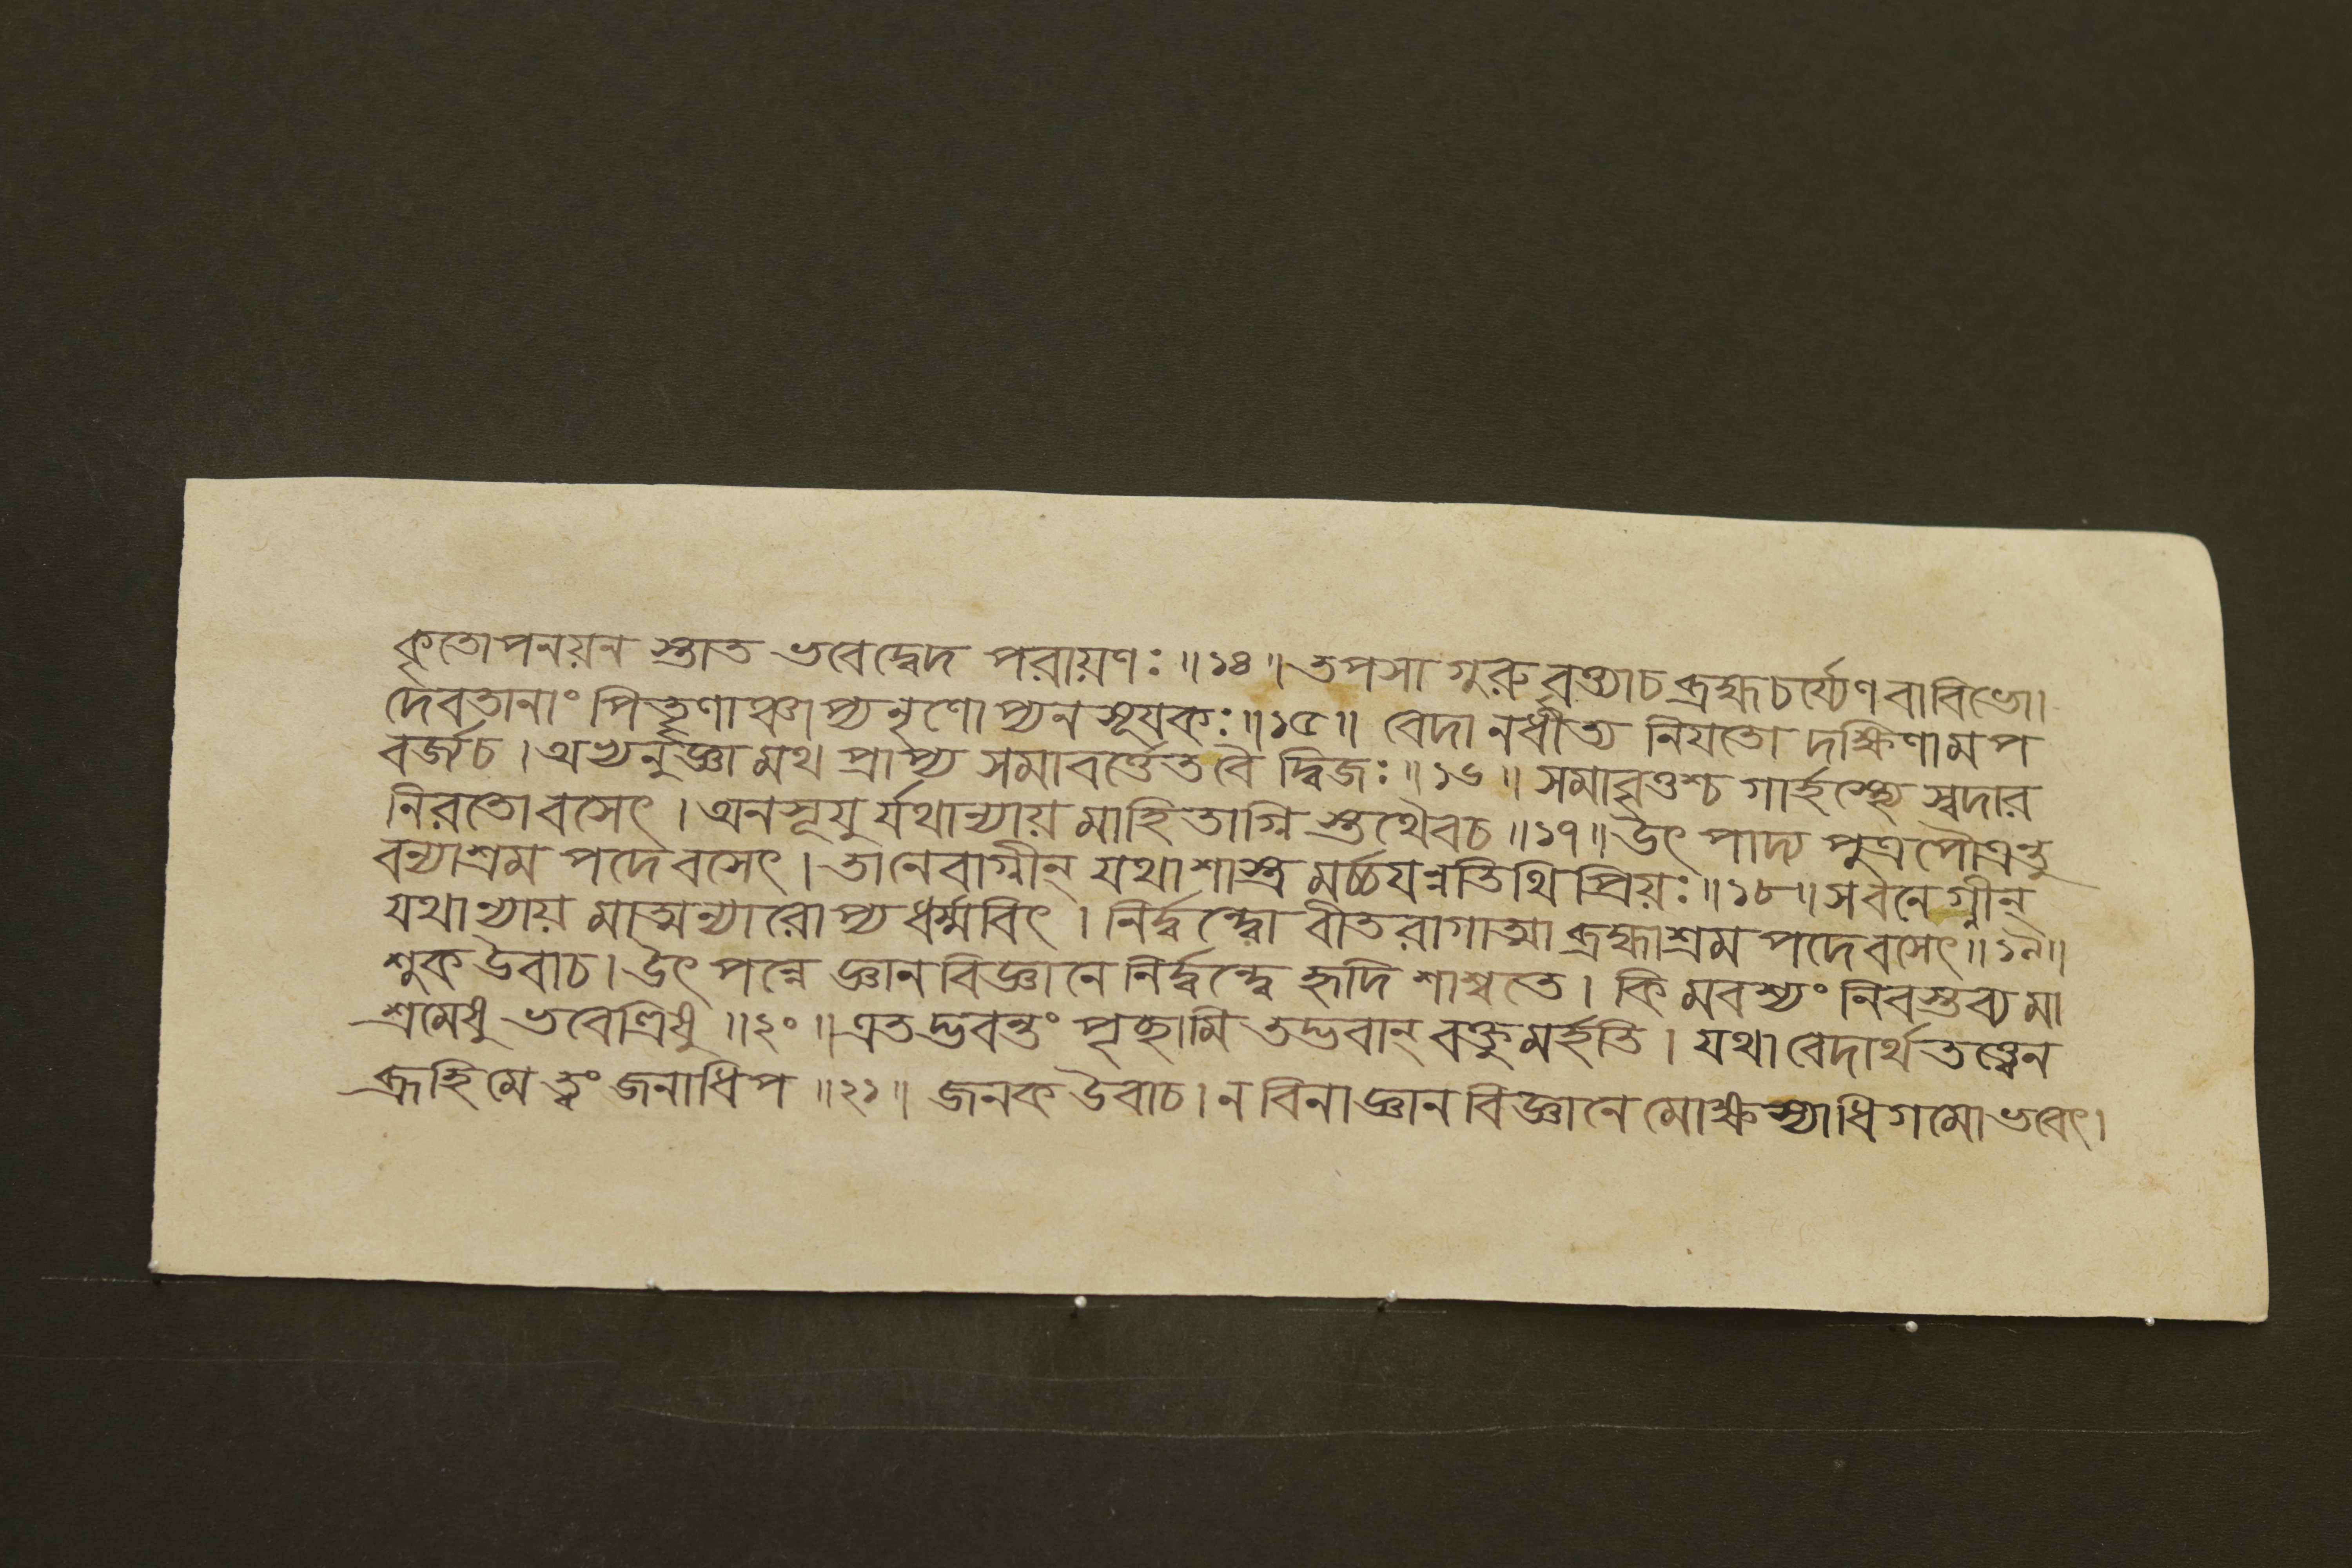 কৃতোপনয়ন স্তাত ভবেদ্বেদ পরায়ণঃ ॥১৪॥ তপসা গুরুবৃত্ত্যাচ ব্রহ্মচর্য্যেণ বাবিভো।
দেবতানাং পিতৄণাঞ্চাপ্যনৃণোপ্যনসূযকঃ ॥১৫॥ বেদানধীত্য নিযতো দক্ষিণামপ
বর্জচ। অভ্যনুজ্ঞামথ প্রাপ্য সমাবর্ত্তেতবৈ দ্বিজঃ ॥১৬॥ সমাবৃত্তশ্চ গার্হস্থ্যে স্বদার
নিরতোবসেৎ। অনসূযুর্যথান্যায়মাহিতাগ্নি স্তথৈবচ ॥১৭॥ উৎপাদ্য পুত্রপৌত্রন্তু
বন্যাশ্রম পদেবসেৎ। তানেবাগ্নীন্ যথাশাস্ত্রমর্চ্চযন্নতিথিপ্রিয়ঃ ॥১৮॥ সবনেগ্নীন্
যথান্যায়মাত্মন্যারোপ্য ধর্ম্মবিৎ। নির্দ্বন্দ্বো বীতরাগাত্মা ব্রহ্মাশ্রম পদেবসেৎ ॥১৯॥
শুক উবাচ। উৎপন্নে জ্ঞানবিজ্ঞানে নির্দ্বন্দ্বে হৃদি শাশ্বতে। কিমবশ্যং নিবস্তব্যমা
শ্রমেষু ভবেত্রিষু ॥২০॥ এতদ্ভবন্তং পৃচ্ছামি তদ্ভবান্ বক্তুমর্হতি। যথা বেদার্থতত্ত্বেন
ব্রূহিমে ত্বং জনাধিপ ॥২১॥ জনক উবাচ। ন বিনা জ্ঞানবিজ্ঞানে মোক্ষস্যাধিগমো ভবেৎ।